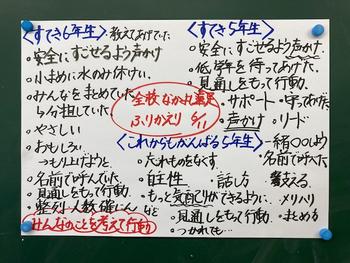 <すてき6年生> 教えてあげていた
・安全にすごせるよう声かけ
・小まめに水のみ休けい。
・みんなをまとめていた
ら分担していた
・やさしい
・おもしろい
つもり上げようと
・名前で呼んでいた。
・見通しをもって行動。
・整列、人数確にん など
みんなのことを考えて行動
全校なかよし遠足
ふりかえり 5/11
<すてき5年生>
・安全にすごせるよう声かけ
・低学年を待ってあげた。
・見通しをもって行動。
・サポート ・守ってあげた
・声かけ ・リード
<これからもがんばる5年生> 一緒○○しよう
・忘れものをなくす。 ・名前で呼べた
・自主性 ・話し方 ・支える。
・もっと気配りができるように。 ・メリハリ
・見通しをもって行動 ・まとめる
・つかれても…